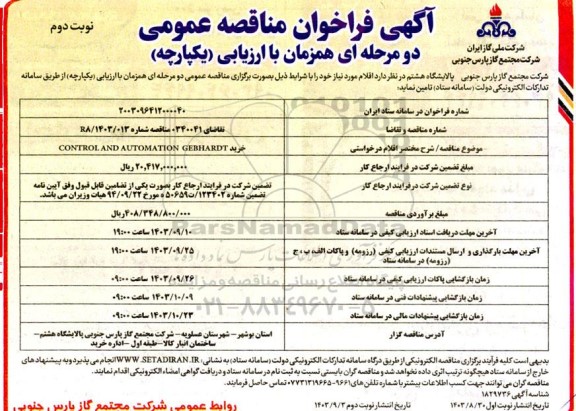 آگهی فراخوان مناقصه عمومی
نوبت دوم
دو مرحله ای همزمان با ارزیابی (یکپارچه)
شرکت ملی گاز ایران
شرکت مجتمع گاز پارس جنوبی
شرکت مجتمع گاز پارس جنوبی پالایشگاه هشتم در نظر دارد اقلام مورد نیاز خود را با شرایط ذیل بصورت برگزاری مناقصه عمومی دو مرحله ای همزمان با ارزیابی (یکپارچه) از طریق سامانه
تدارکات الکترونیکی دولت (سامانه ستاد) تامین نماید:
شماره فراخوان در سامانه ستاد ایران ۲۰۰۳۰۹۶۴۱۲۰۰۰۰۴۰
شماره مناقصه و تقاضا تقاضای ۰۳۴۰۰۴۱ مناقصه شماره R8/۱۴۰۳/۰۱۳
موضوع مناقصه / شرح مختصر اقلام درخواستی خرید CONTROL AND AUTOMATION GEBHARDT
مبلغ تضمین شرکت در فرایند ارجاع کار ۲۰,۴۱۷,۰۰۰,۰۰۰ ریال
نوع تضمین شرکت در فرایند ارجاع کار تضمین شرکت در فرایند ارجاع کار بصورت یکی از تضامین قابل قبول وفق آیین نامه
تضمین شماره ۱۲۳۴۰۲/ت۵۰۶۵۹ه مورخ ۹۴/۰۹/۲۲ هیات وزیران می باشد.
مبلغ برآوردی مناقصه ۴۰۸/۳۴۸/۸۰۰/۰۰۰ ریال
آخرین مهلت دریافت اسناد ارزیابی کیفی در سامانه ستاد ۱۴۰۳/۰۹/۱۰ ساعت ۱۹:۰۰
آخرین مهلت بارگذاری و ارسال مستندات ارزیابی کیفی (رزومه) و پاکات الف، ب، ج
(رزومه) در سامانه ستاد ۱۴۰۳/۰۹/۲۵ ساعت ۱۹:۰۰
زمان بازگشایی پاکات ارزیابی کیفی در سامانه ستاد ۱۴۰۳/۰۹/۲۶ ساعت ۰۹:۰۰
زمان بازگشایی پیشنهادات فنی در سامانه ستاد ۱۴۰۳/۱۰/۰۹ ساعت ۰۹:۰۰
زمان بازگشایی پیشنهادات مالی در سامانه ستاد ۱۴۰۳/۱۰/۲۳ ساعت ۰۹:۰۰
آدرس مناقصه گزار استان بوشهر- شهرستان عسلویه- شرکت مجتمع گاز پارس جنوبی پالایشگاه هشتم-
ساختمان انبار کالا- طبقه اول -اداره خرید
بدیهی است کلیه فرآیند برگزاری مناقصه الکترونیکی از طریق درگاه سامانه تدارکات الکترونیکی دولت (سامانه ستاد) به نشانی: WWW.SETADIRAN.IR انجام می پذیرد و به پیشنهادهای
خارج از سامانه ستاد هیچگونه ترتیب اثری داده نخواهد شد و مناقصه گران بایستی نسبت به ثبت نام در سامانه ستاد و دریافت گواهی امضاء الکترونیکی اقدام نمایند.
مناقصه گران می توانند جهت کسب اطلاعات بیشتر با شماره تلفن های ۹۶۶۱-۰۷۷۳۱۳۱۹۶۶۵ تماس حاصل فرمایند.
شناسه آگهی ۱۸۲۹۷۳۶
تاریخ انتشار نوبت اول ۱۴۰۳/۸/۳۰ تاریخ انتشار نوبت دوم ۱۴۰۳/۹/۳
روابط عمومی شرکت مجتمع گاز پارس جنوبی
ParsNamadData
۰۲۱-۸۸۳۴۹۶۷۰-۵